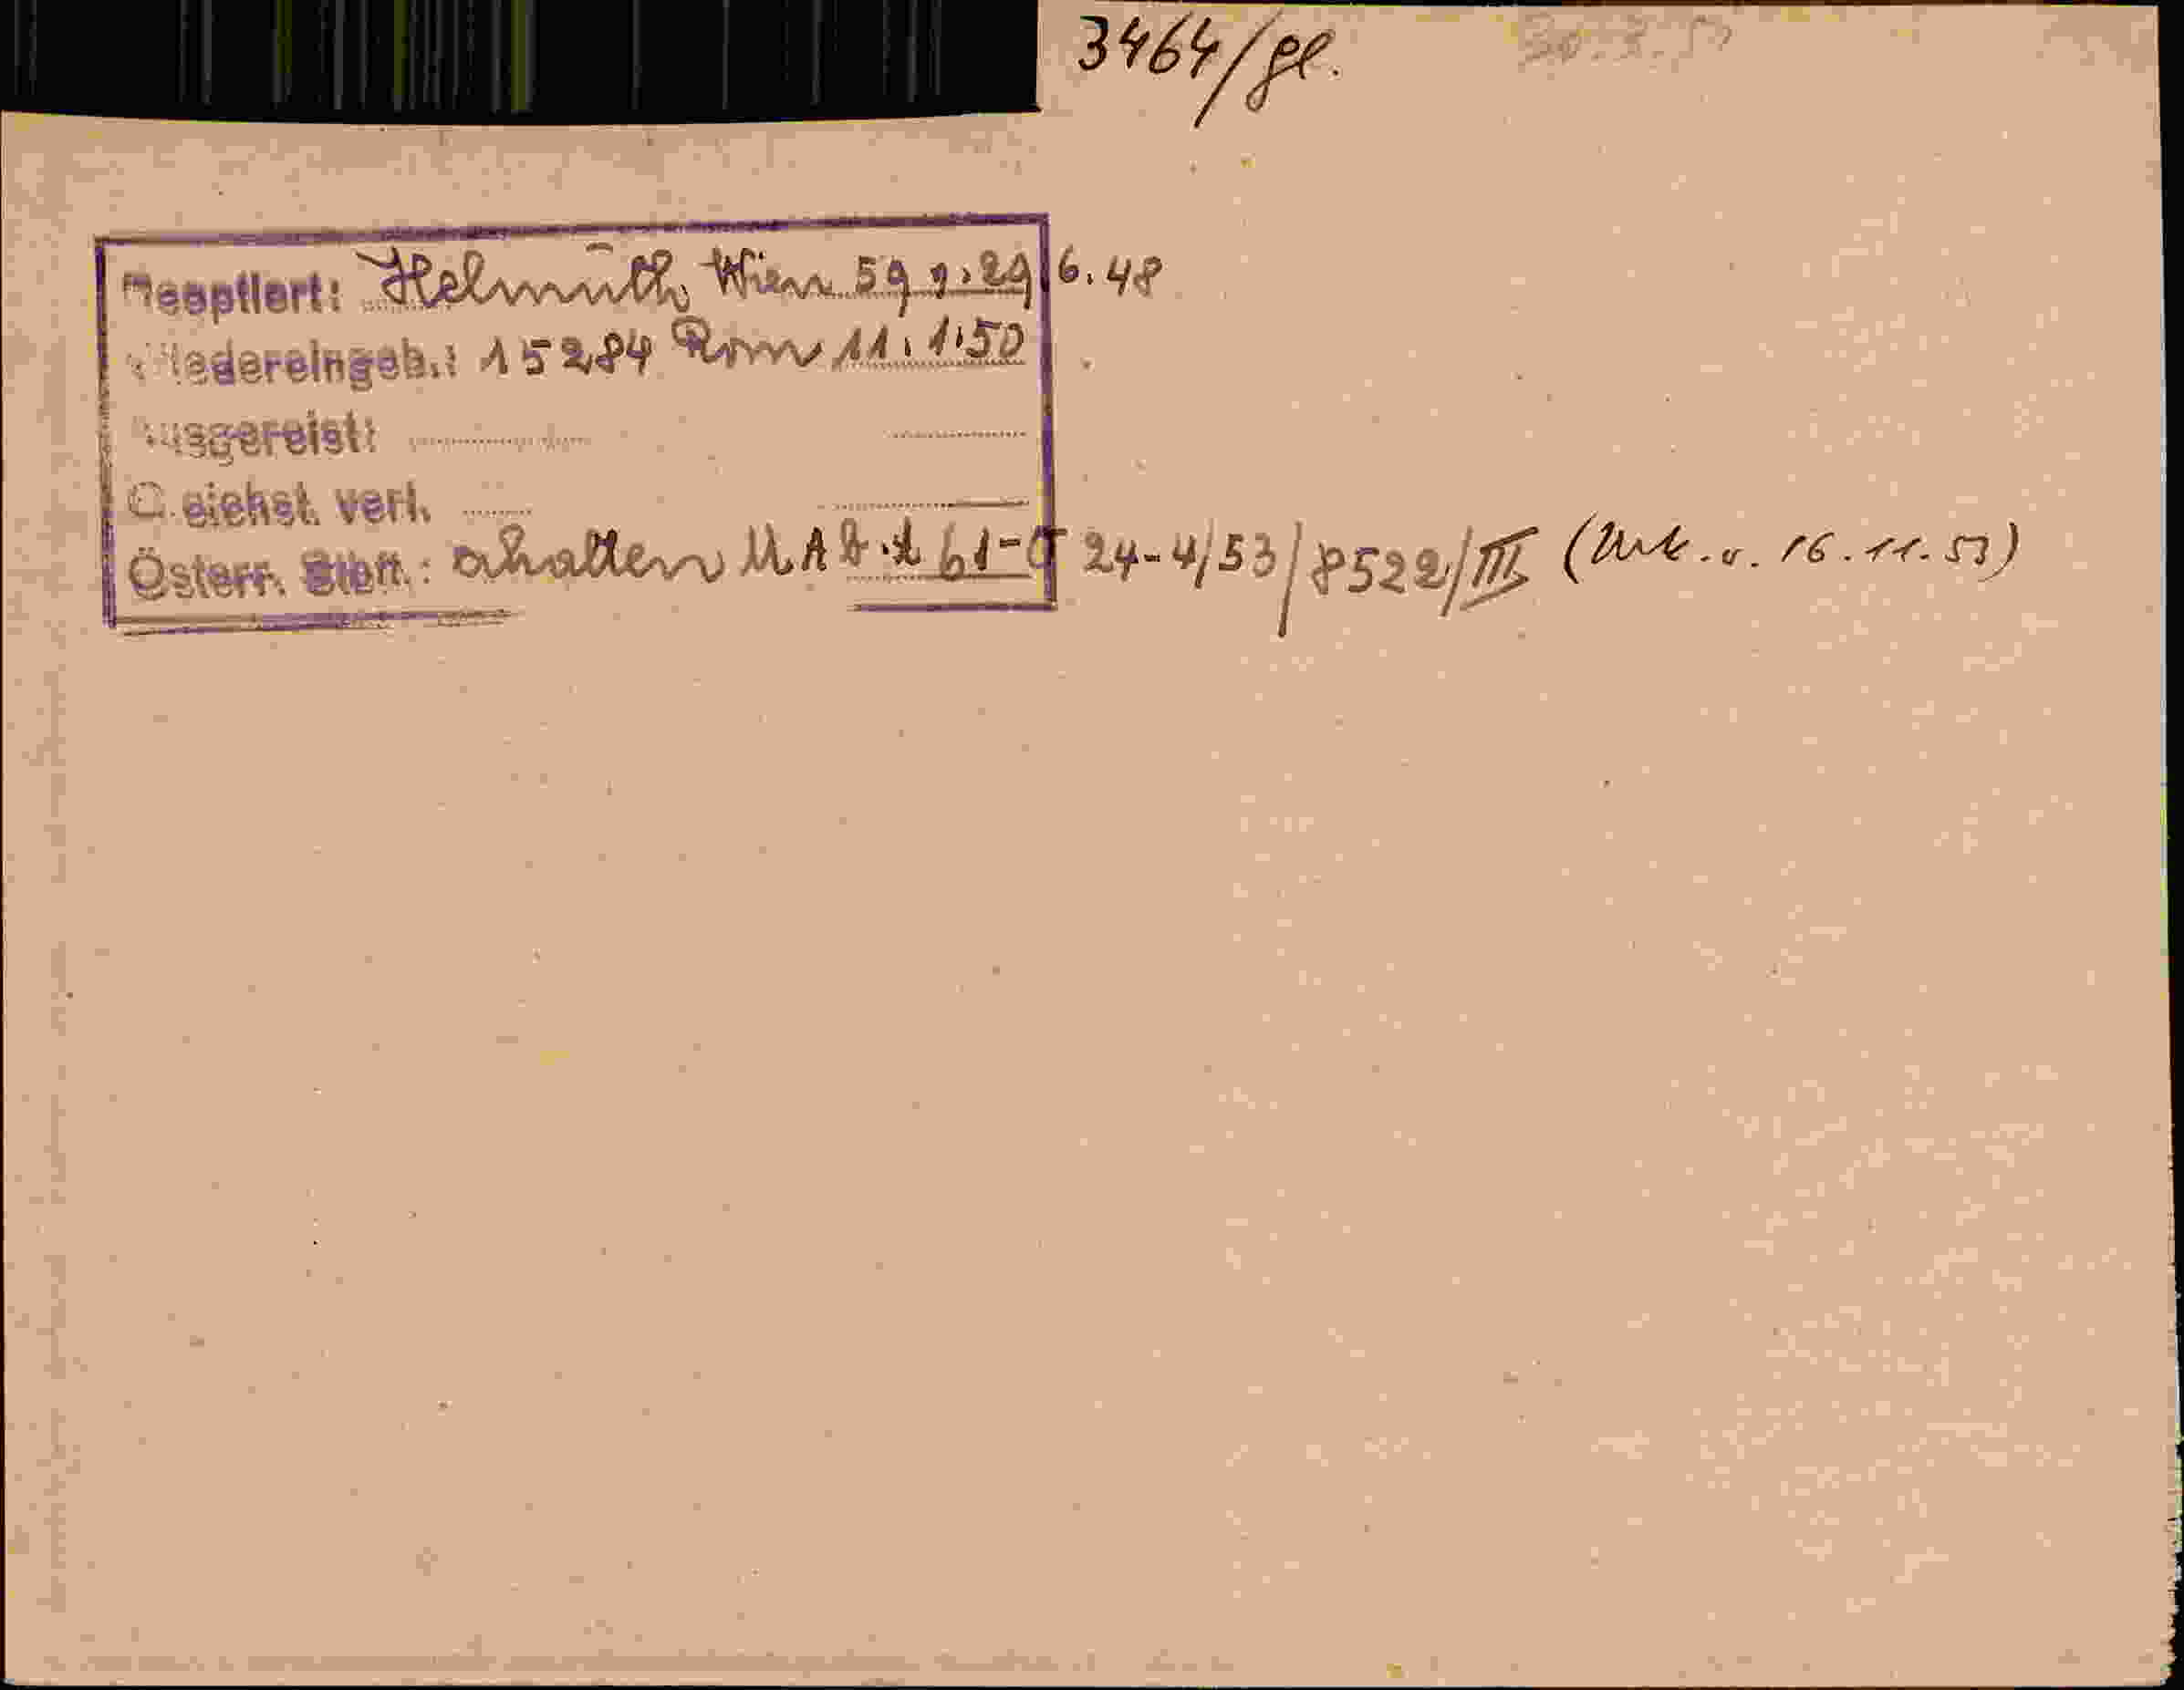 3464/gl.
30.3.51
Reoptiert: Helmuth, Wien 59 v. 29 6. 48
Wiedereingeb.: 15284 Rom 11. 1. 50
Ausgereist:
Gleichst. verl.
Österr. Stbft.: erhalten M.Abt. 61- 24-4/53/8522/III (Urk. v. 16.11.53)